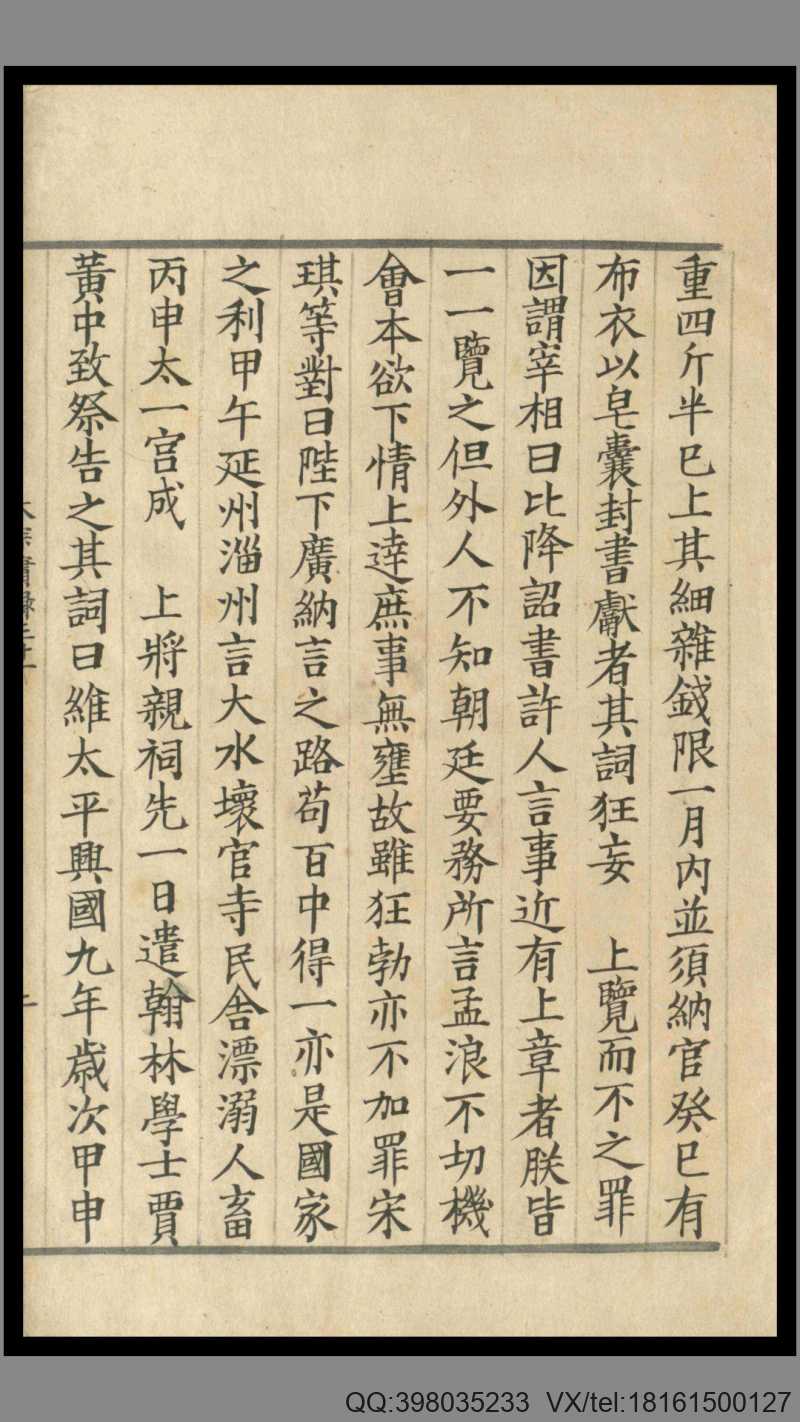 重四斤半已上其細雜錢限一月內並須納官癸巳有
布衣以皂囊封書獻者其詞狂妄　上覽而不之罪
因謂宰相曰比降詔書許人言事近有上章者朕皆
一一覽之但外人不知朝廷要務所言孟浪不切機
會本欲下情上達庶事無壅故雖狂勃亦不加罪宋
琪等對曰陛下廣納言之路苟百中得一亦是國家
之利甲午延州淄州言大水壞官寺民舍漂溺人畜
丙申太一宮成　上將親祠先一日遣翰林學士賈
黃中致祭告之其詞曰維太平興國九年歲次甲申
QQ:398035233 VX/tel:18161500127